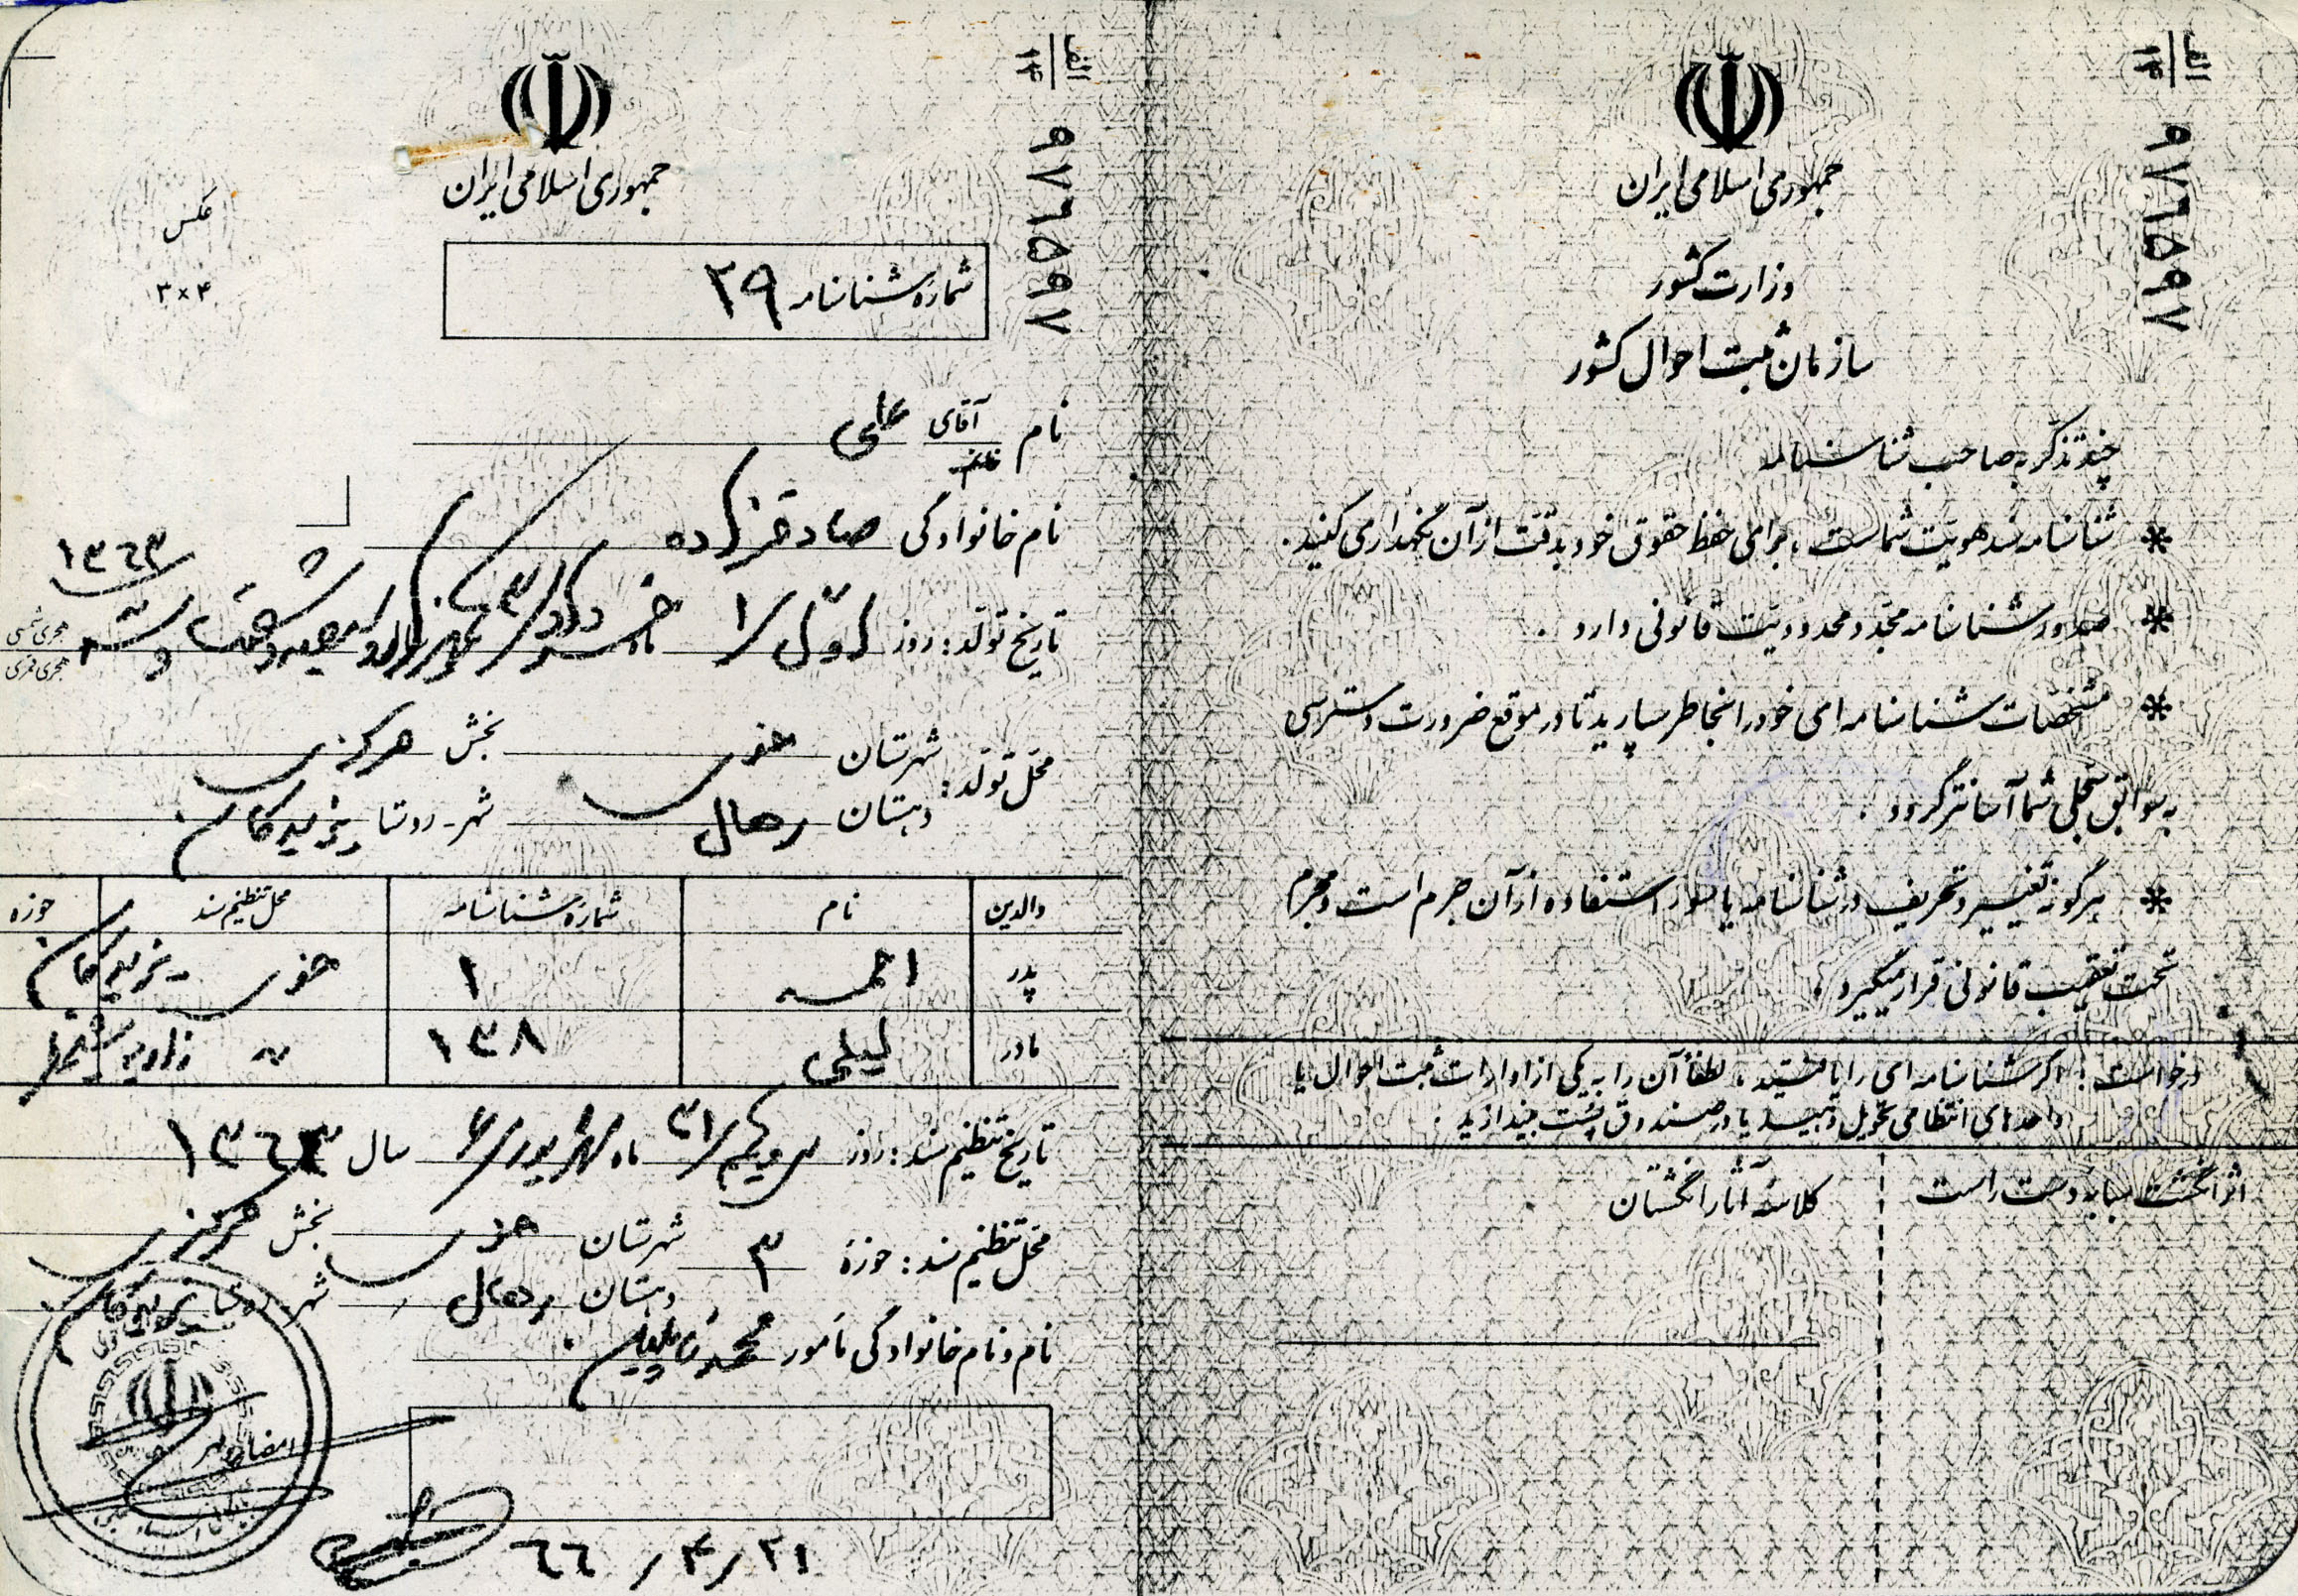 الف
۱۴
۹۷٦۵۹۷
جمهوری اسلامی ایران
وزارت کشور
سازمان ثبت احوال کشور
چند تذکر به صاحب شناسنامه
* شناسنامه سند هویت شماست ، برای حفظ حقوق خود بدقت از آن نگهداری کنید .
* صدور شناسنامه مجدد محدودیت قانونی دارد .
* مشخصات شناسنامه‌ای خود را بخاطر بسپارید تا در موقع ضرورت دسترسی
به سوابق سجلی شما آسانتر گردد .
* هرگونه تغییر و تحریف در شناسنامه یا سوء استفاده از آن جرم است و مجرم
تحت تعقیب قانونی قرار میگیرد .
درخواست : اگر شناسنامه‌ای را یافتید ، لطفاً آن را به یکی از ادارات ثبت احوال یا
واحدهای انتظامی تحویل دهید یا در صندوق پست بیندازید .
اثر انگشت سبابه دست راست
کلاسه آثار انگشتان
الف
۱۴
۹۷٦۵۹۷
جمهوری اسلامی ایران
عکس
۳×۴
شماره شناسنامه ۲۹
نام آقای علی
خانم
نام خانوادگی صادقزاده
۱۳٦۳
تاریخ تولد : روز اول / ۱ ماه خرداد / ۳ یکهزار و سیصد و شصت و سه
هجری شمسی
هجری قمری
محل تولد : شهرستان خوی بخش مرکزی
دهستان رهال شهر - روستا
والدین نام شماره شناسنامه محل تنظیم سند حوزه
پدر احمد ۱ خوی
مادر لیلی ۱۳۸
تاریخ تنظیم سند : روز سی و یکم / ۳۱ ماه شهریور / ۶ سال ۱۳٦۳
محل تنظیم سند : حوزه ۳ شهرستان خوی بخش مرکزی
دهستان رهال شهر - روستا
نام و نام خانوادگی مأمور محمد
امضاء و مهر
۲۱ / ۴ / ٦٦